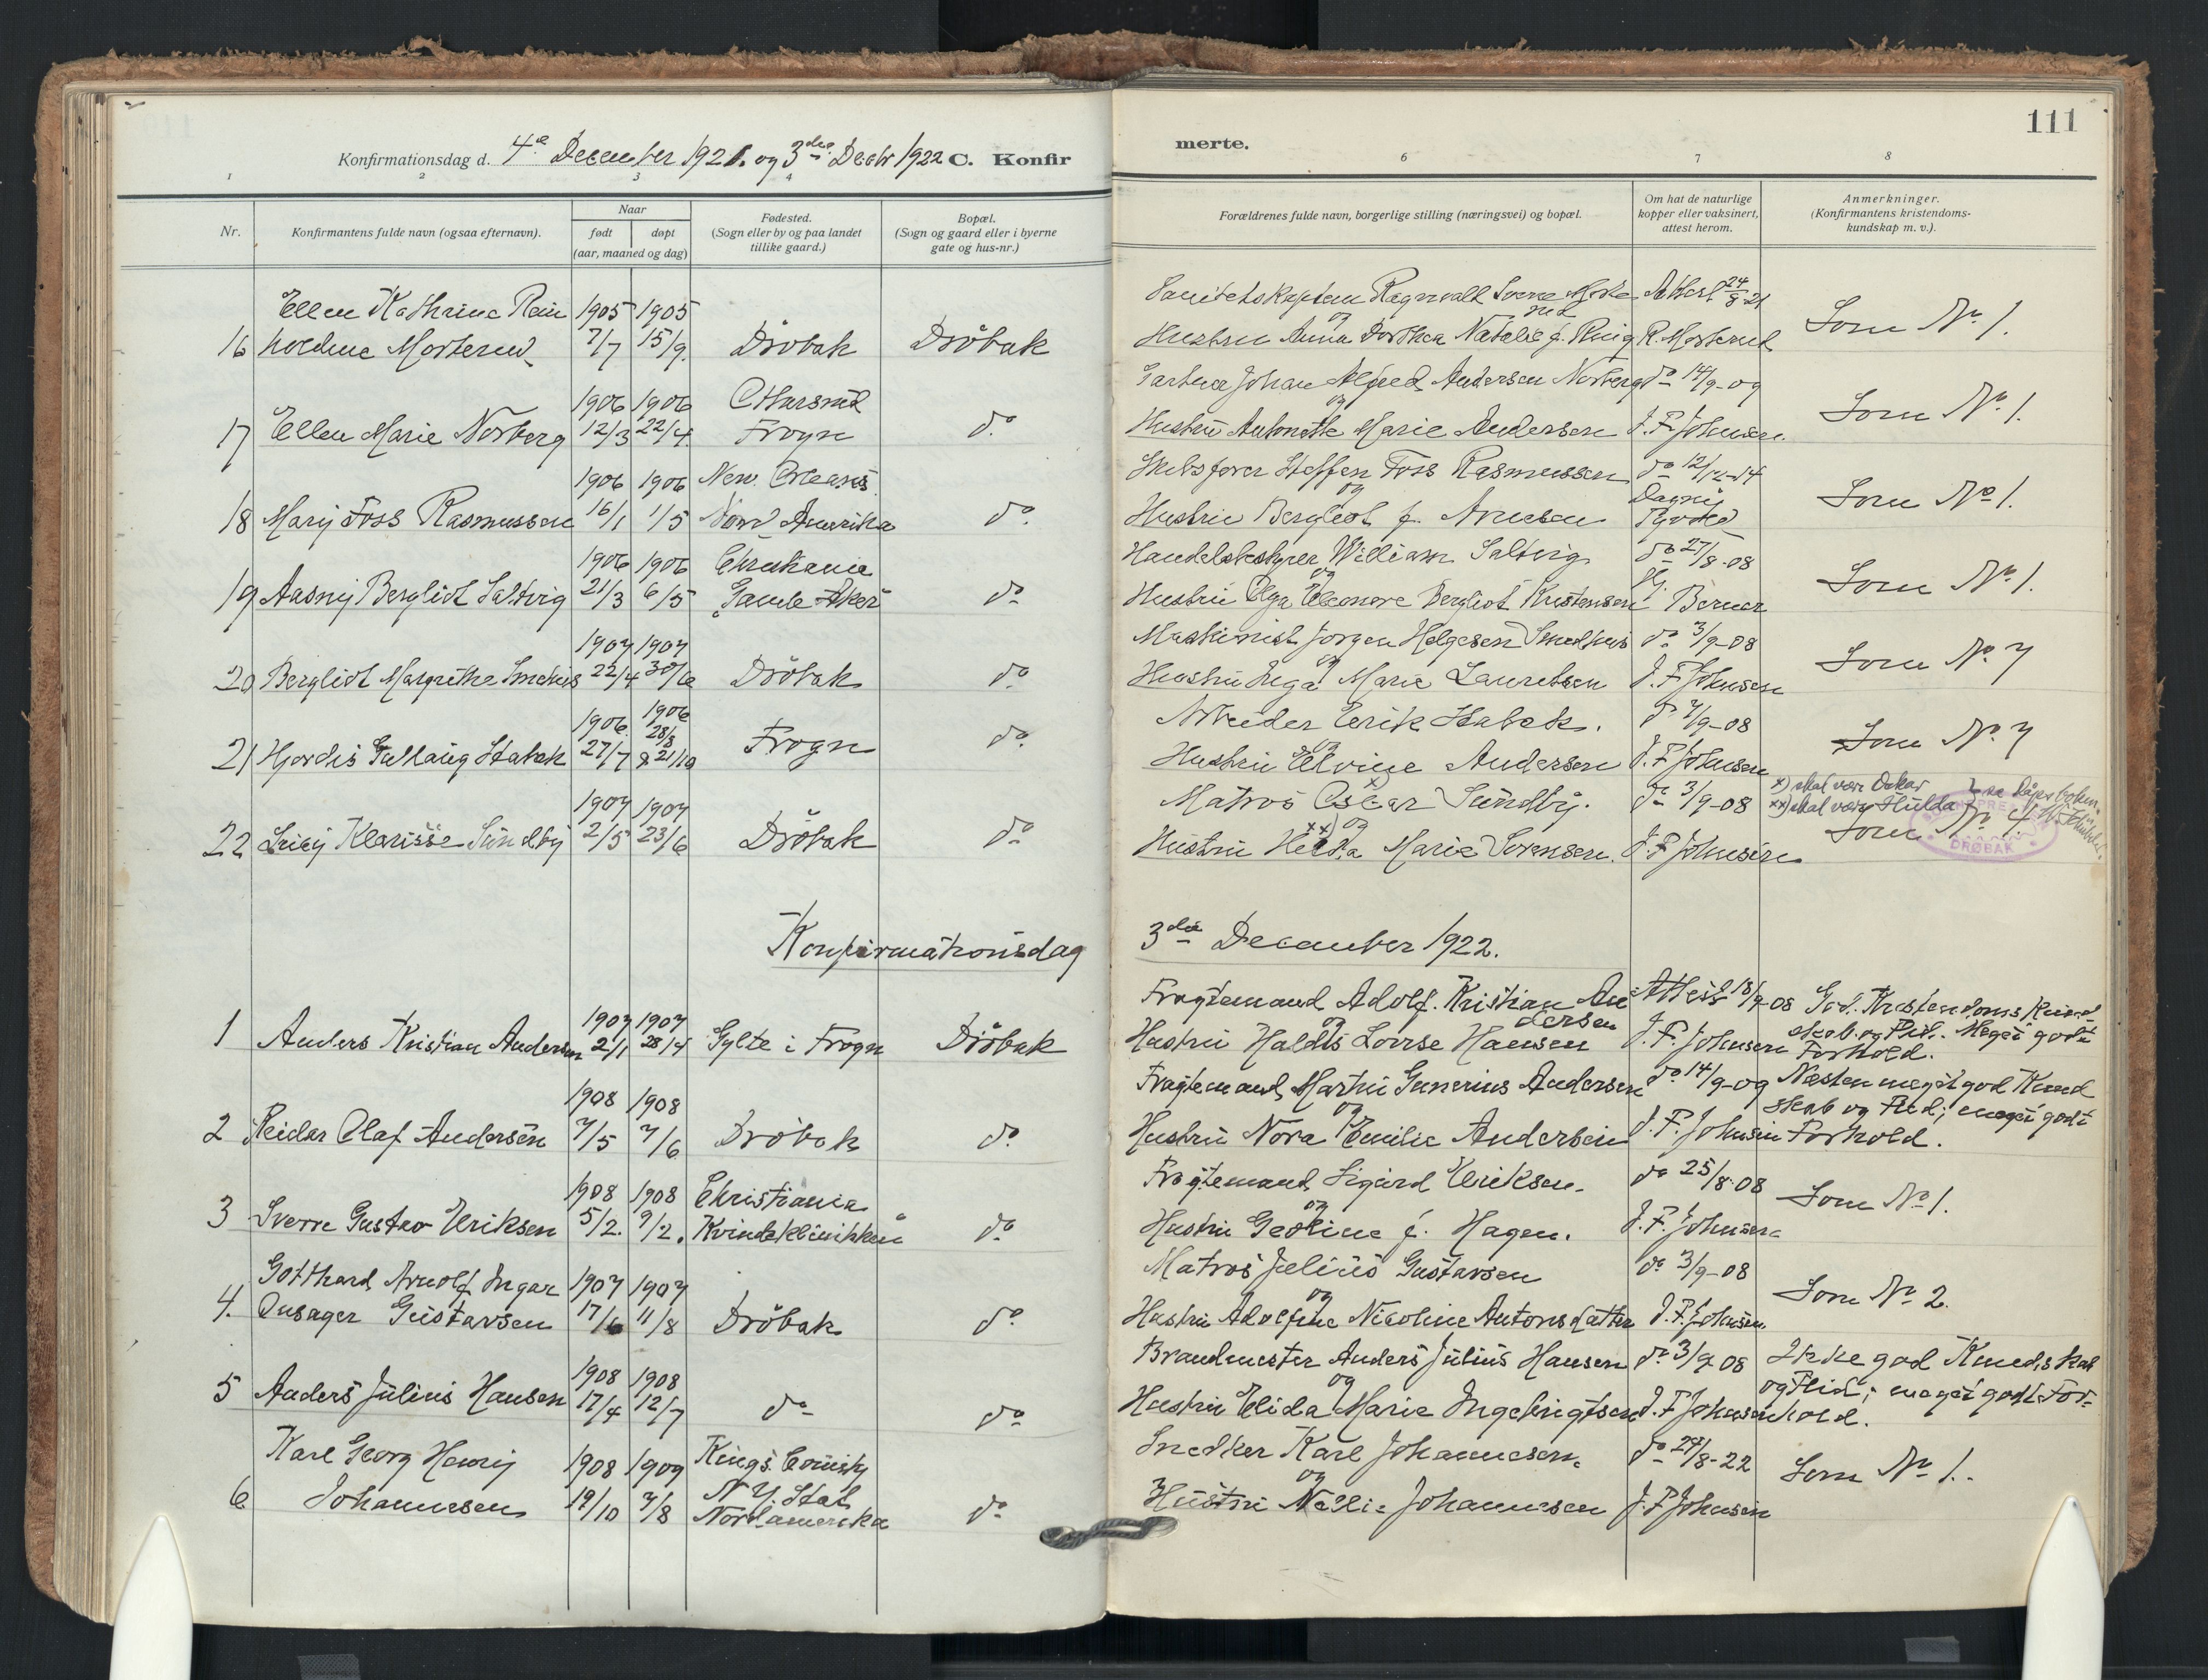 Konfirmationsdag d. 4de December 1921. og 3die Decbr 1922 C. Konfir
merte.
111
1 2 3 4
6 7 8
Nr.
Konfirmantens fulde navn (ogsaa efternavn).
Naar
født
døpt
(aar, maaned og dag)
Fødested.
(Sogn eller by og paa landet
tillike gaard.)
Bopæl.
(Sogn og gaard eller i byerne
gate og hus-nr.)
Forældrenes fulde navn, borgerlige stilling (næringsvei) og bopæl.
Om hat de naturlige
kopper eller vaksinert,
attest herom.
Anmerkninger.
(Konfirmantens kristendoms-
kundskap m. v.).
Ellen Kathrine 1905 1905
16 Morterud 7/7 15/9. Dröbak Dröbak
Ragnvald Attest 24/8-21
og
Hustru Anna Dorthea Natalie f. R. Morterud
Som No 1.
1906 1906
17 Ellen Marie Norberg 12/3 22/4 Frogn do
Gartner Johan Alfred Andersen Norberg do 14/9-09
og
Hustru Marie Andersen J. F. Johnsen.
Som No 1.
1906 1906 New Orleans
18 Mary Foss Rasmussen 16/1 1/5 Nord Amerika do
Skibsfører Steffen Foss Rasmussen do 12/12-14
og
Hustru Bergliot f. Arnesen Dagny
Som No 1.
1906 1906 Christiania
19 Aasny Bergliot Saltvig 21/3 6/5 Gamle Aker do
William Saltvig do 27/8-08
og
Hustru Olga Eleonore Bergliot Kristensen Berner
Som No 1.
1907 1907
20 Bergliot Margrethe 22/4 30/6 Dröbak do
Maskinist Jørgen Helgesen Smedhus do 3/9-08
og
Hustru Inga Marie Lauritsen J. F. Johnsen
Som No 7
1906 1906
28/3
21 Hjordis Stabek 27/7 & 21/10 Frogn do
Arbeider Erik Stabek. do 7/9-08
og
Hustru Elvine Andersen J. F. Johnsen
Som No 7
1907 1907
22 Klarisse Sundby 2/5 23/6 Dröbak do
x)
Matros Oscar Sundby. do 3/9-08
xx) og
Hustru Marie Sørensen. J. F. Johnsen
x) skal være Oskar
xx) skal være Hulda
Som No 4
DRØBAK
Konfirmationsdag
3die December 1922.
1907 1907
1 Anders Kristian Andersen 2/1 28/4 Gylte i Frogn Dröbak
Fragtemand Adolf Kristian An-
dersen
og
Hustru Haldis Lovise Hansen
Attest 18/9-08
J. F. Johnsen
God. Kristendomskund
skab og Flid. Meget godt
Forhold.
1908 1908
2 Reidar Olaf Andersen 7/5 7/6 Dröbak do
Fragtemand Martin Gunerius Andersen do 14/9-09
og
Hustru Nora Emilie Andersen J. F. Johnsen
Næsten meget god Kund
skab og Flid; meget godt
Forhold.
1908 1908 Christiania
3 Sverre Gustav Eriksen 5/2. 9/2. Kvindeklinikken do
Fragtemand Sigurd Eriksen. do 25/8-08
og
Hustru Georine f. Hagen. J. F. Johnsen
Som No 1.
Gotthard Arnolf Ingar 1907 1907
4. Onsager Gustavsen 17/6 11/8 Dröbak do
Matros Julius Gustavsen do 3/9-08
og
Hustru Adolfine Nicoline Antonsdatter J. F. Johnsen.
Som No 2.
1908 1908
5 Anders Julius Hansen 17/4 12/7 do do
Brandmester Anders Julius Hansen do 3/9 08
og
Hustru Elida Marie Ingebrigtsen J. F. Johnsen
Ikke god Kundskab
og Flid; meget godt For-
hold.
Karl Georg Henry 1908 1909 Kings County
6 Johannesen 19/10 7/8 N. Y. Stat do
Nordamerika
Snedker Karl Johannesen. do 24/8-22
og
Hustru Nelli Johannesen J. F. Johnsen
Som No 1.